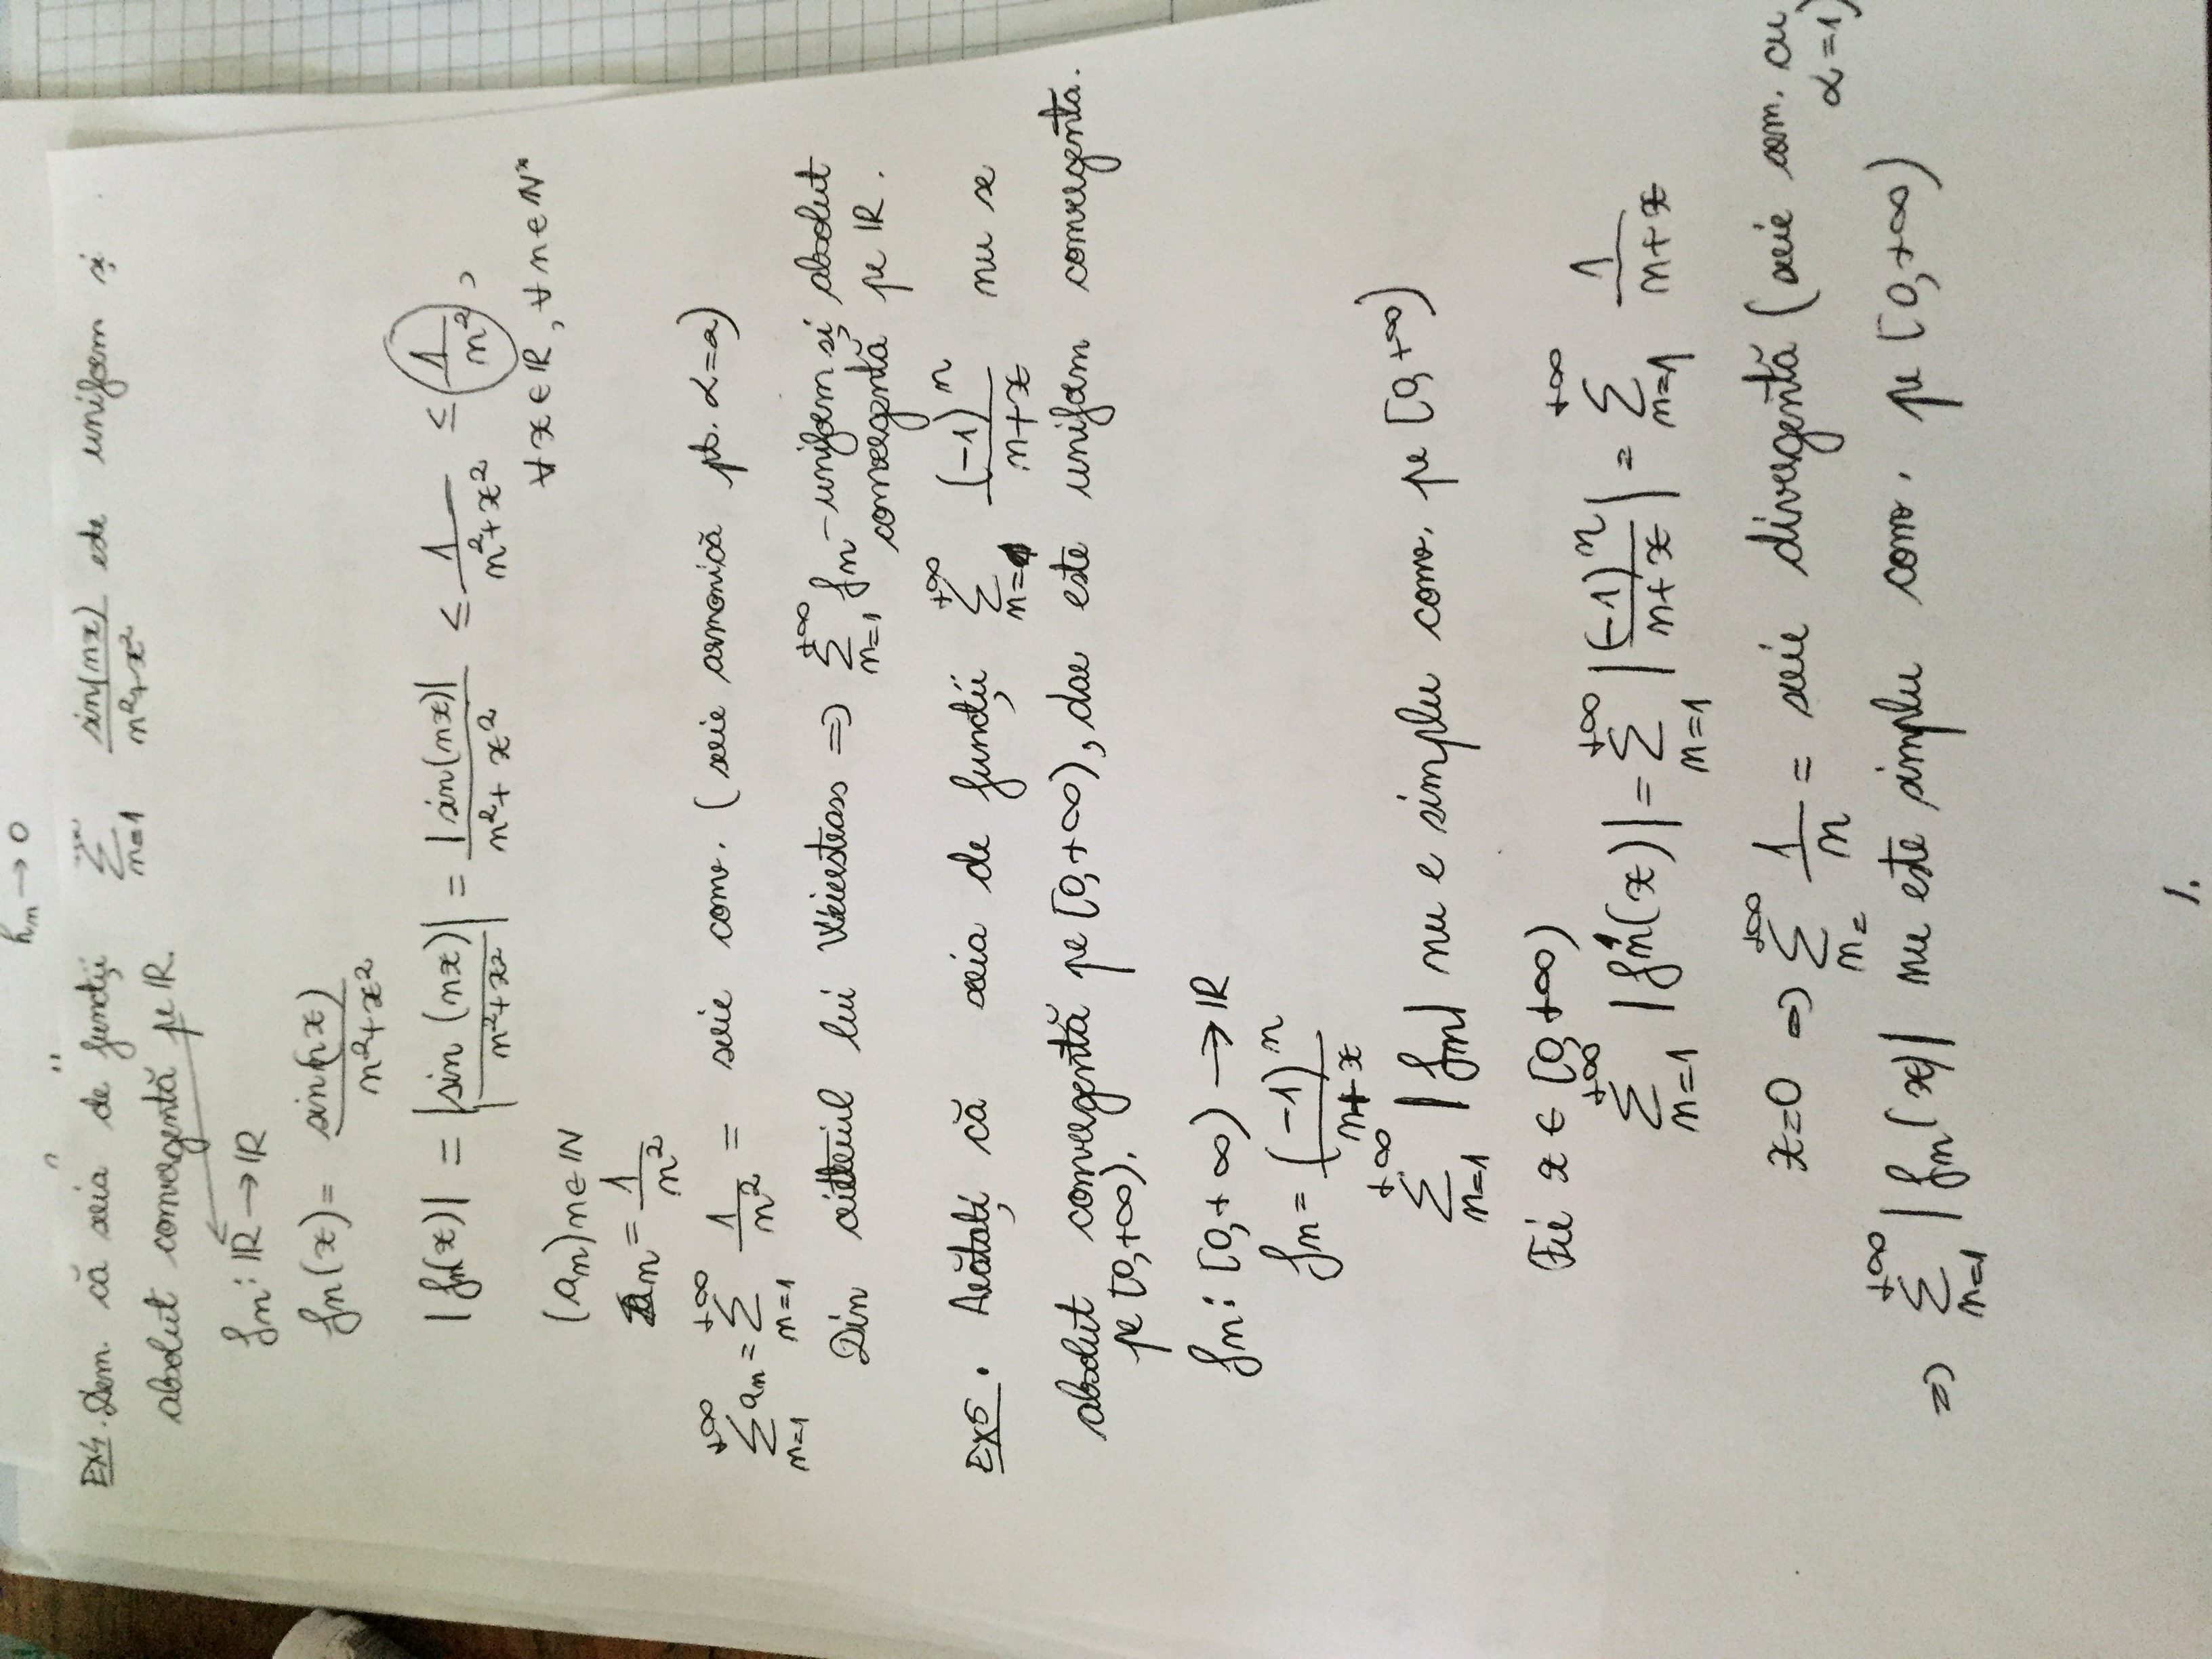 hₙ → 0
Ex4. Dem. că seria de funcții $\sum_{n=1}^{+\infty} \frac{\sin(nx)}{n^2+x^2}$ este uniform și
absolut convergentă pe ℝ.
fₙ: ℝ → ℝ
$f_n(x) = \frac{\sin(nx)}{n^2+x^2}$
$|f_n(x)| = \left|\frac{\sin(nx)}{n^2+x^2}\right| = \frac{|\sin(nx)|}{n^2+x^2} \le \frac{1}{n^2+x^2} \le \frac{1}{n^2}$,
∀ x ∈ ℝ, ∀ n ∈ ℕ*
(aₙ) n ∈ ℕ
$a_n = \frac{1}{n^2}$
$\sum_{n=1}^{+\infty} a_n = \sum_{n=1}^{+\infty} \frac{1}{n^2}$ = serie conv. (serie armonică pt. α=2)
Din criteriul lui Weierstrass ⇒ $\sum_{n=1}^{+\infty} f_n$ - uniform și absolut
convergentă pe ℝ.
Ex5. Arătați că seria de funcții $\sum_{n=1}^{+\infty} \frac{(-1)^n}{n+x}$ nu se
absolut convergentă pe [0,+∞), dar este uniform convergentă.
pe [0,+∞).
fₙ: [0,+∞) → ℝ
$f_n = \frac{(-1)^n}{n+x}$
$\sum_{n=1}^{+\infty} |f_n|$ nu e simplu conv. pe [0,+∞)
Fie x ∈ [0,+∞)
$\sum_{n=1}^{+\infty} |f_n(x)| = \sum_{n=1}^{+\infty} \left|\frac{(-1)^n}{n+x}\right| = \sum_{n=1}^{+\infty} \frac{1}{n+x}$
x=0 ⇒ $\sum_{n=}^{+\infty} \frac{1}{n}$ = serie divergentă (serie arm. cu
α=1)
⇒ $\sum_{n=1}^{+\infty} |f_n(x)|$ nu este simplu conv. pe [0,+∞)
1.